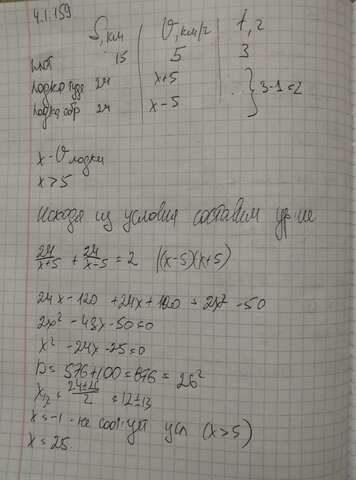 4.1.159
S, км | V, км/ч | t, ч
плот 15 5 3
лодка туда 24 x+5
3-1=2
лодка обр 24 x-5
x - V лодки
x>5
Исходя из условия составим ур-ие
24/(x+5) + 24/(x-5) = 2 |(x-5)(x+5)
24x-120 +24x+120 = 2x² -50
2x² -48x-50=0
x² -24x-25=0
D = 576+100=676=26²
x₁,₂ = (24±26)/2 =12±13
x=-1 - не соотв усл (x>5)
x=25